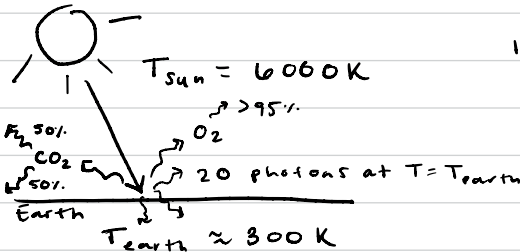 T sun = 6000K
>95%
O2
50%
CO2
50%
20 photons at T = T earth
Earth
T earth ≈ 300 K